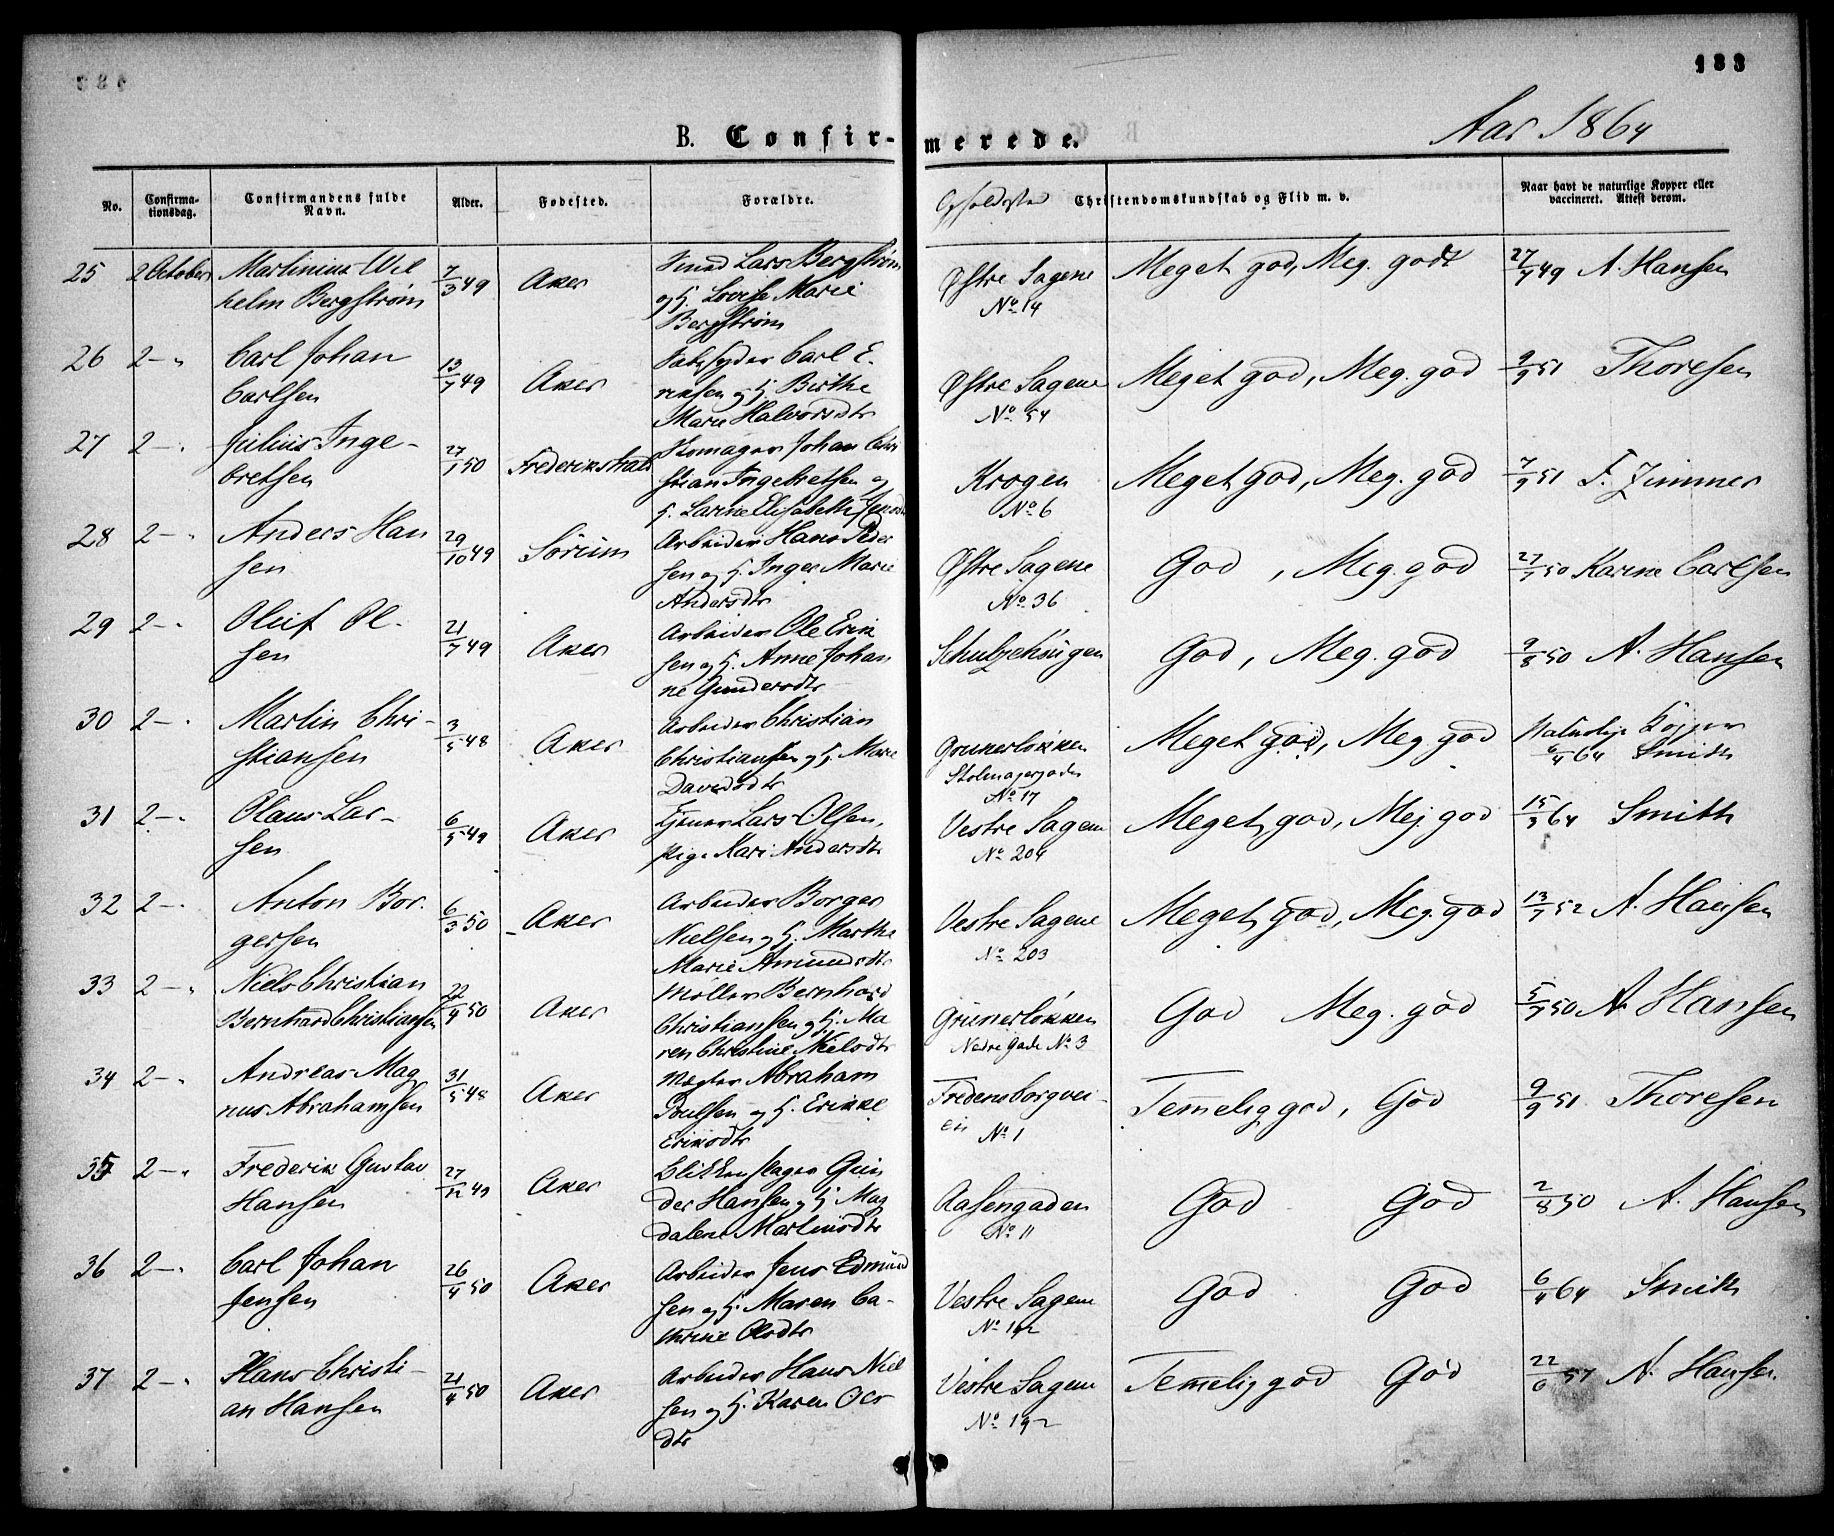 183
Aar 1864
B. Confirmerede.
No.
Confirmationsdag.
Confirmandens fulde Navn.
Alder.
Fødested.
Forældre.
Opholdssted
Christendomskundskab og Flid m. v.
Naar havt de naturlige Kopper eller vaccineret. Attest derom.
25 2 October Martinius Wil 7/3 49 Aker Lars Bergstrøm Østre Sagene Meget god, Meg. godt 27/7 49 A. Hansen
helm Bergstrøm og H. Lovise Marie No 14
Bergstrøm
26 2 — " Carl Johan 13/7 49 Aker Carl E- Østre Sagene Meget god, Meg. god 9/9 51 Thoresen
Carlsen riksen og H. Birthe No 54
Marie Halvorsdtr
27 2 — " Julius Inge- 27/1 50 Frederikshald Skomager Johan Chri Krogen Meget god, Meg. god 7/9 51 F. Zimmer
bretsen stian Ingebretsen og No 6
H. Larine Elisabeth Jensdtr
28 2 — " Anders Han 29/10 49 Sørum Arbeider Hans Peder Østre Sagene God, Meg. god 27/7 50 Karine Carlsen
sen sen og H. Inger Marie No 36
Andersdtr
29 2 — " Oluf Ol- 21/7 49 Aker Arbeider Ole Erik Schultzehaugen God, Meg. god 9/8 50 A. Hansen
sen sen og H. Anne Johan
ne Gundersdtr
30 2 — " Martin Chri- 3/5 48 Aker Arbeider Christian Grunerløkken Meget god, Meg. god Naturlige Kopper
stiansen Christiansen og H. Marie Stolmagergaden 6/4 64 Smith
Davidsdtr No 17
31 2 — " Olaus Lar- 6/5 49 Aker Tjener Lars Olsen, Vestre Sagene Meget god, Meg. god 15/3 64 Smith
sen Pige Kari Andersdtr No 204
32 2 — " Anton Bor- 6/3 50 Aker Arbeider Borger Vestre Sagene Meget god, Meg. god 13/7 52 A. Hansen
gersen Nielsen og H. Marthe No 203
Marie Amundsdtr
33 2 — " Niels Christian 22/4 50 Aker Møller Bernhard Grünerløkken God Meg. god 5/7 50 A. Hansen
Bernhard Christiansen Christiansen og H. Ma Nedre Gade No 3
ren Christine Nielsdtr
34 2 — " Andreas Mag 31/5 48 Aker Mægler Abraham Fredensborgvei- Temmelig god, God 9/9 51 Thoresen
nus Abrahamsen Poulsen og H. Erikke en No 1
Eriksdtr
35 2 — " Frederik Gustav 27/12 49 Aker Blikkenslager Gun Aasengaden God God 2/8 50 A. Hansen
Hansen der Hansen og H. Mag No 11
dalene Martinsdtr
36 2 — " Carl Johan 26/4 50 Aker Arbeider Jens Edmund Vestre Sagene God God 6/4 64 Smith
Jensen sen og H. Maren Ca- No 192
thrine Olsdtr
37 2 — " Hans Christi- 21/4 50 Aker Arbeider Hans Niel Vestre Sagene Temmelig god God 22/6 57 A. Hansen
an Hansen sen og H. Karen Ols No 192
dtr